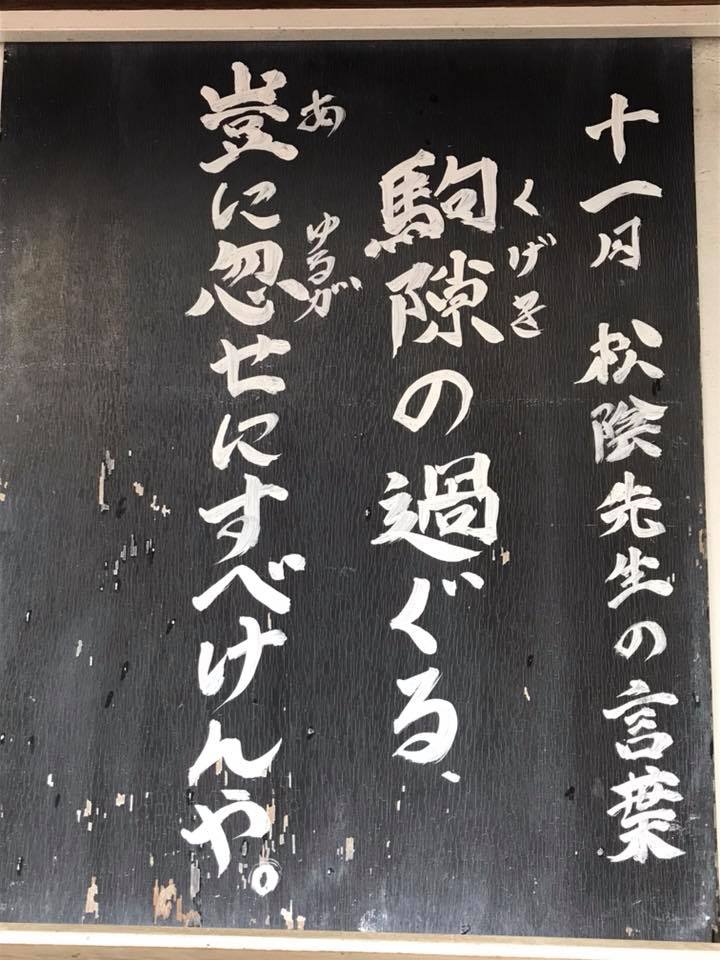 十一月 松陰先生の言葉
駒隙の過ぐる、
くげき
豈に忽せにすべけんや。
あ
ゆるが